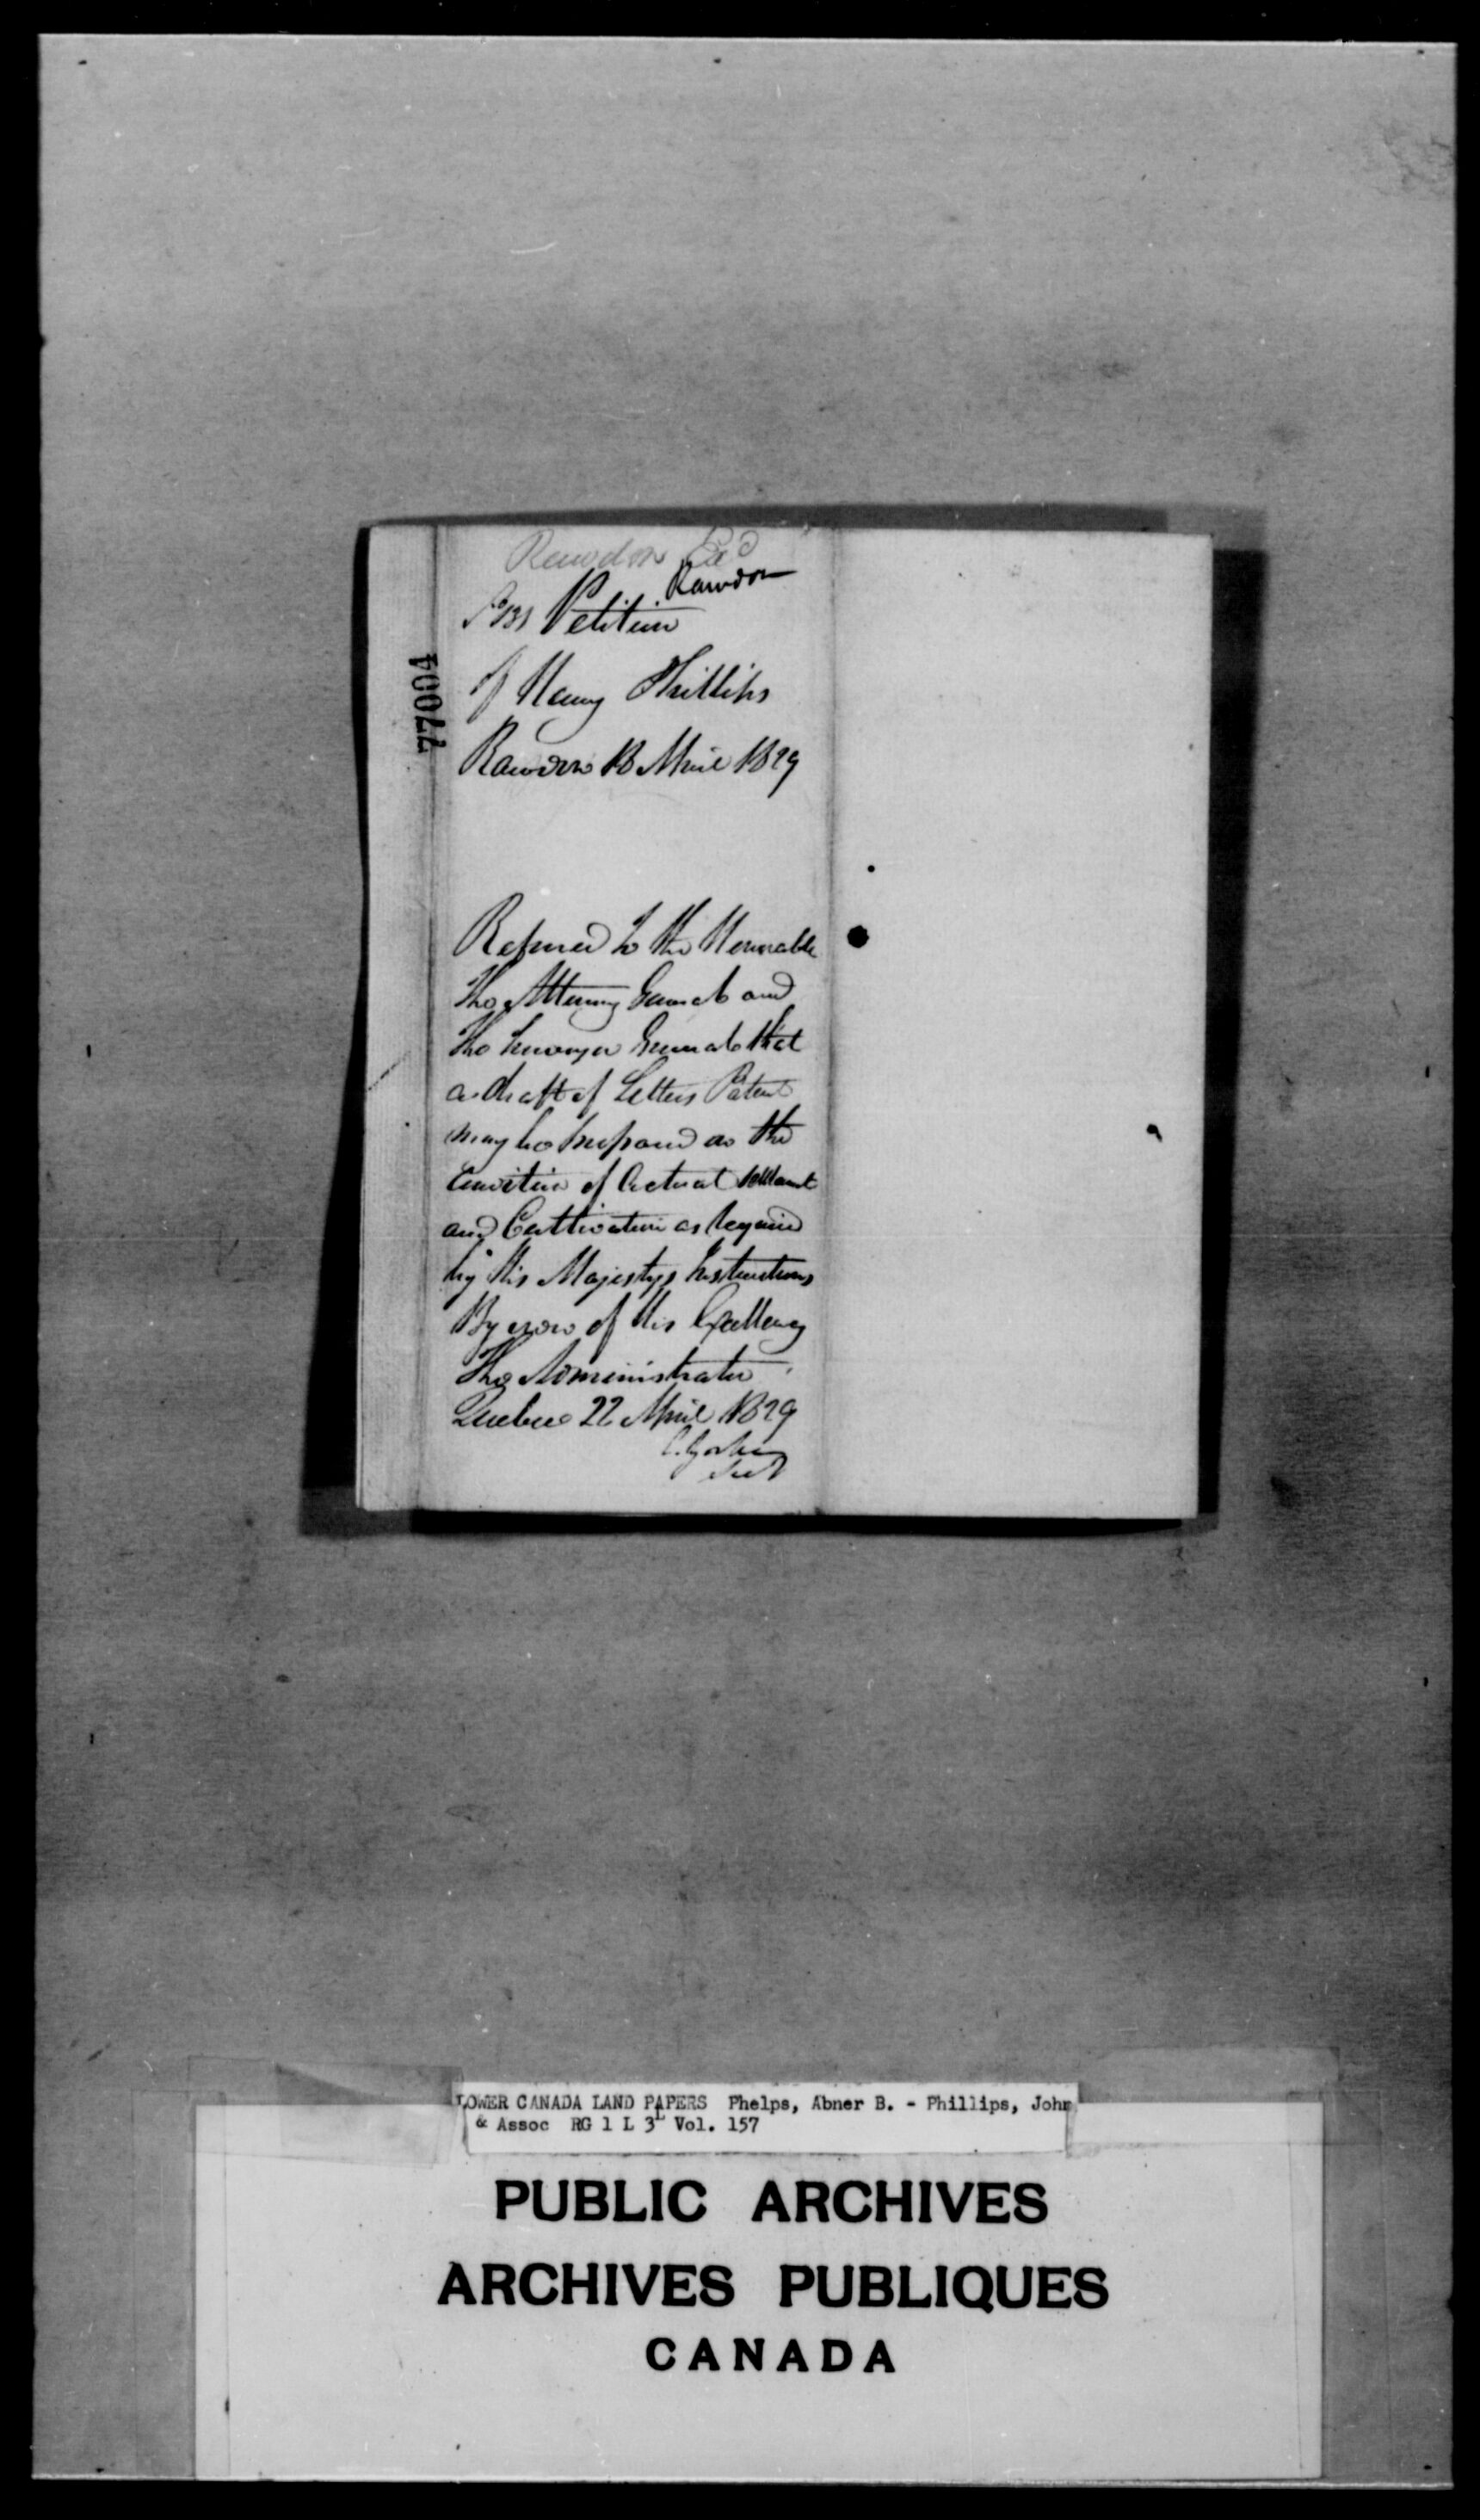 Rawdon
Rawdon
Petition
of Henry Phillips
Rawdon 18 April 1829
77004
Referred to the Honorable
The Attorney General and
The Surveyor General that
a draft of Letters Patent
may be prepared on the
Condition of Actual Settlement
and Cultivation as required
by His Majestys Instructions
By order of His Excellency
The Administrator
Quebec 22 April 1829
LOWER CANADA LAND PAPERS Phelps, Abner B. - Phillips, John
& Assoc RG 1 L 3L Vol. 157
PUBLIC ARCHIVES
ARCHIVES PUBLIQUES
CANADA